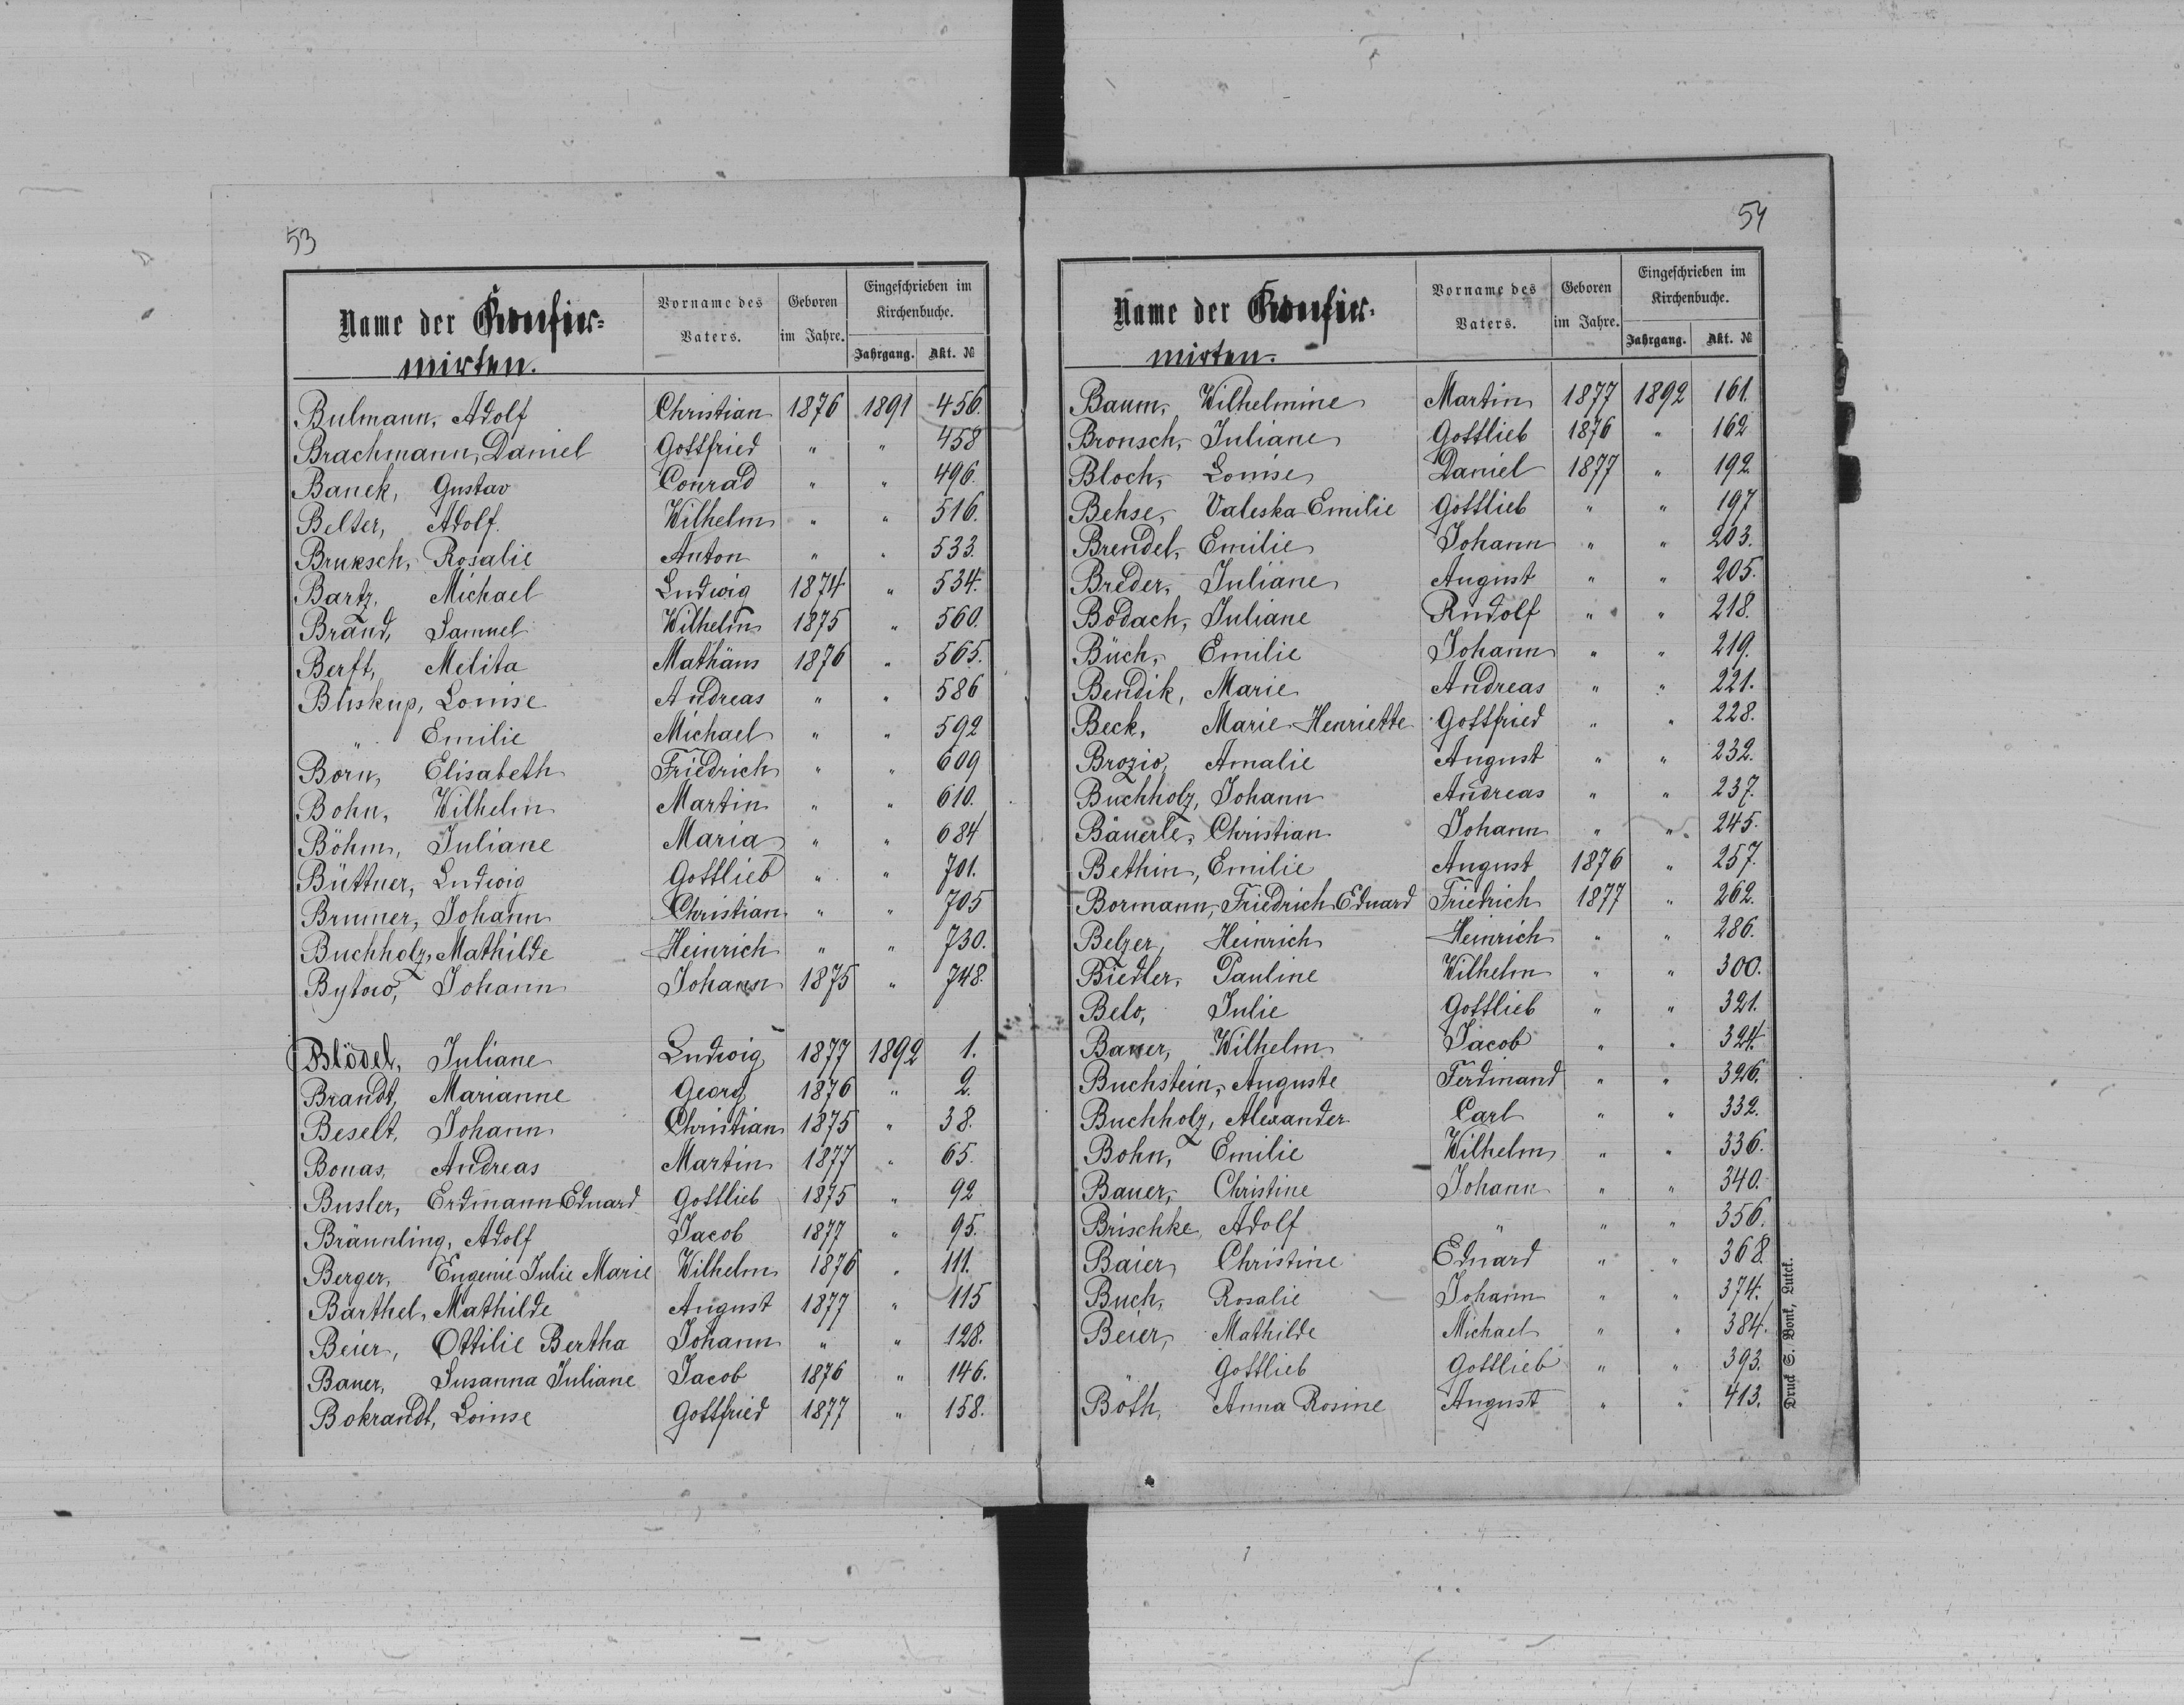 53
Name der Confir-
mirten.
Vorname des Vaters.
Geboren im Jahre.
Eingeschrieben im Kirchenbuche.
Jahrgang. Akt. №
Bulmann, Adolf Christian 1876 1891 456.
Brachmann, Daniel Gottfried " " 458
Banek, Gustav Conrad " " 496.
Belter, Adolf. Wilhelm " " 516.
Bruksch, Rosalie Anton " " 533.
Bartz, Michael Ludwig 1874 " 534.
Brand, Samuel Wilhelm 1875 " 560.
Berft, Melita Mathäus 1876 " 565.
Biskup, Louise Andreas " " 586
" Emilie Michael " " 592
Born, Elisabeth Friedrich " " 609
Bohn, Wilhelm Martin " " 610.
Böhm, Juliane Maria " " 684
Büttner, Ludwig Gottlieb " " 701.
Brunner, Johann Christian " " 705
Buchholz, Mathilde Heinrich " " 730.
Bytow, Johann Johann 1875 " 748.
Blödel, Juliane Ludwig 1877 1892 1.
Brandt, Marianne Georg 1876 " 2.
Beselt, Johann Christian 1875 " 38.
Bonas, Andreas Martin 1877 " 65.
Busler, Erdmann Eduard Gottlieb 1875 " 92
Bräunling, Adolf Jacob 1877 " 95.
Berger, Eugenie Julie Marie Wilhelm 1876 " 111.
Barthel, Mathilde August 1877 " 115
Beier, Ottilie Bertha Johann " " 128.
Bauer, Susanna Juliane Jacob 1876 " 146.
Bokrandt, Louise Gottfried 1877 " 158.
54
Name der Confir-
mirten.
Vorname des Vaters.
Geboren im Jahre.
Eingeschrieben im Kirchenbuche.
Jahrgang. Akt. №
Baum, Wilhelmine Martin 1877 1892 161.
Bronsch, Juliane Gottlieb 1876 " 162
Bloch, Louise Daniel 1877 " 192.
Behse, Valeska Emilie Gottlieb " " 197
Brendel, Emilie Johann " " 203.
Breder, Juliane August " " 205.
Bodach, Juliane Rudolf " " 218.
Büch, Emilie Johann " " 219.
Bendik, Marie Andreas " " 221.
Beck, Marie Henriette Gottfried " " 228.
Brozio, Amalie August " " 232.
Buchholz, Johann Andreas " " 237.
Bäuerle, Christian Johann " " 245.
Bethin, Emilie August 1876 " 257.
Bormann, Friedrich Eduard Friedrich 1877 " 262.
Belzer, Heinrich Heinrich " " 286.
Biedler, Pauline Wilhelm " " 300.
Belo, Julie Gottlieb " " 321.
Bauer, Wilhelm Jacob " " 324.
Buchstein, Auguste Ferdinand " " 326.
Buchholz, Alexander Carl " " 332.
Bohn, Emilie Wilhelm " " 336.
Bauer, Christine Johann " " 340.
Brischke, Adolf " " " 356.
Baier, Christine Eduard " " 368.
Buch, Rosalie Johann " " 374.
Beier, Mathilde Michael " " 384.
Gottlieb Gottlieb " " 393.
Böth, Anna Rosine August " " 413.
Druck S. Bonk, Lutck.